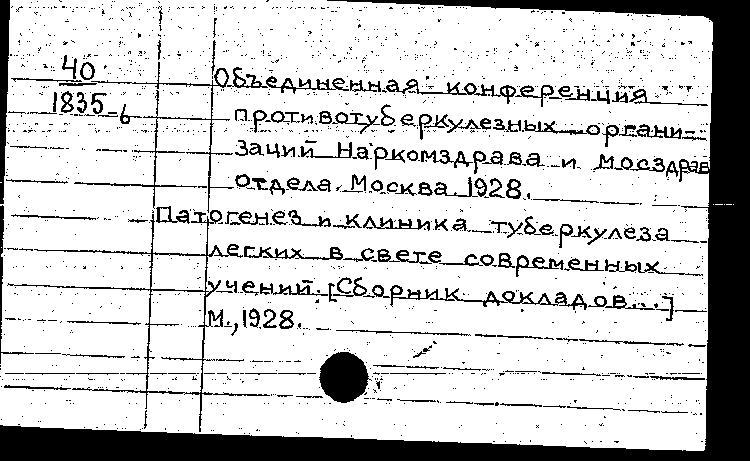 40
1835-6
Объединенная конференция
противотуберкулезных органи-
заций Наркомздрава и мосздрав
отдела. Москва. 1928.
Патогенез и клиника туберкулеза
легких в свете современных
учений. [Сборник докладов...]
М., 1928.